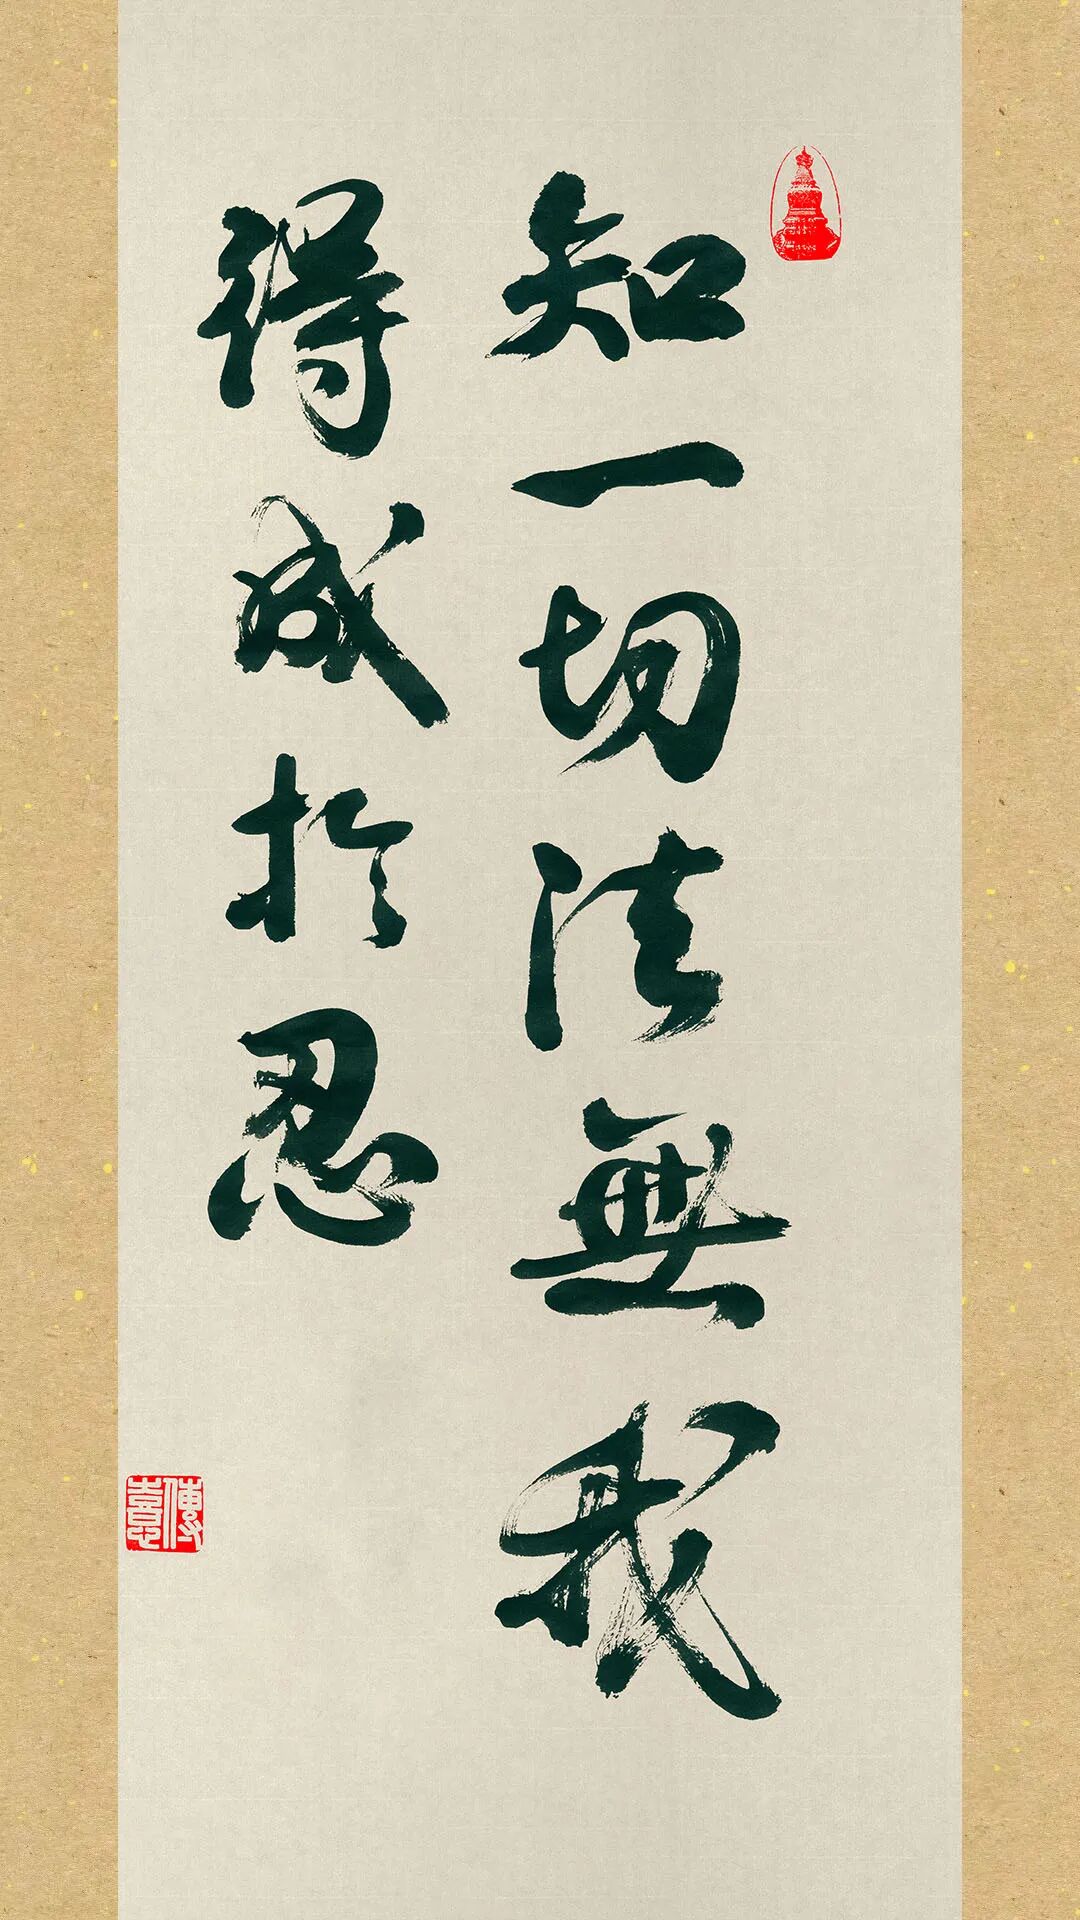 知一切法無我
得成於忍
傳喜